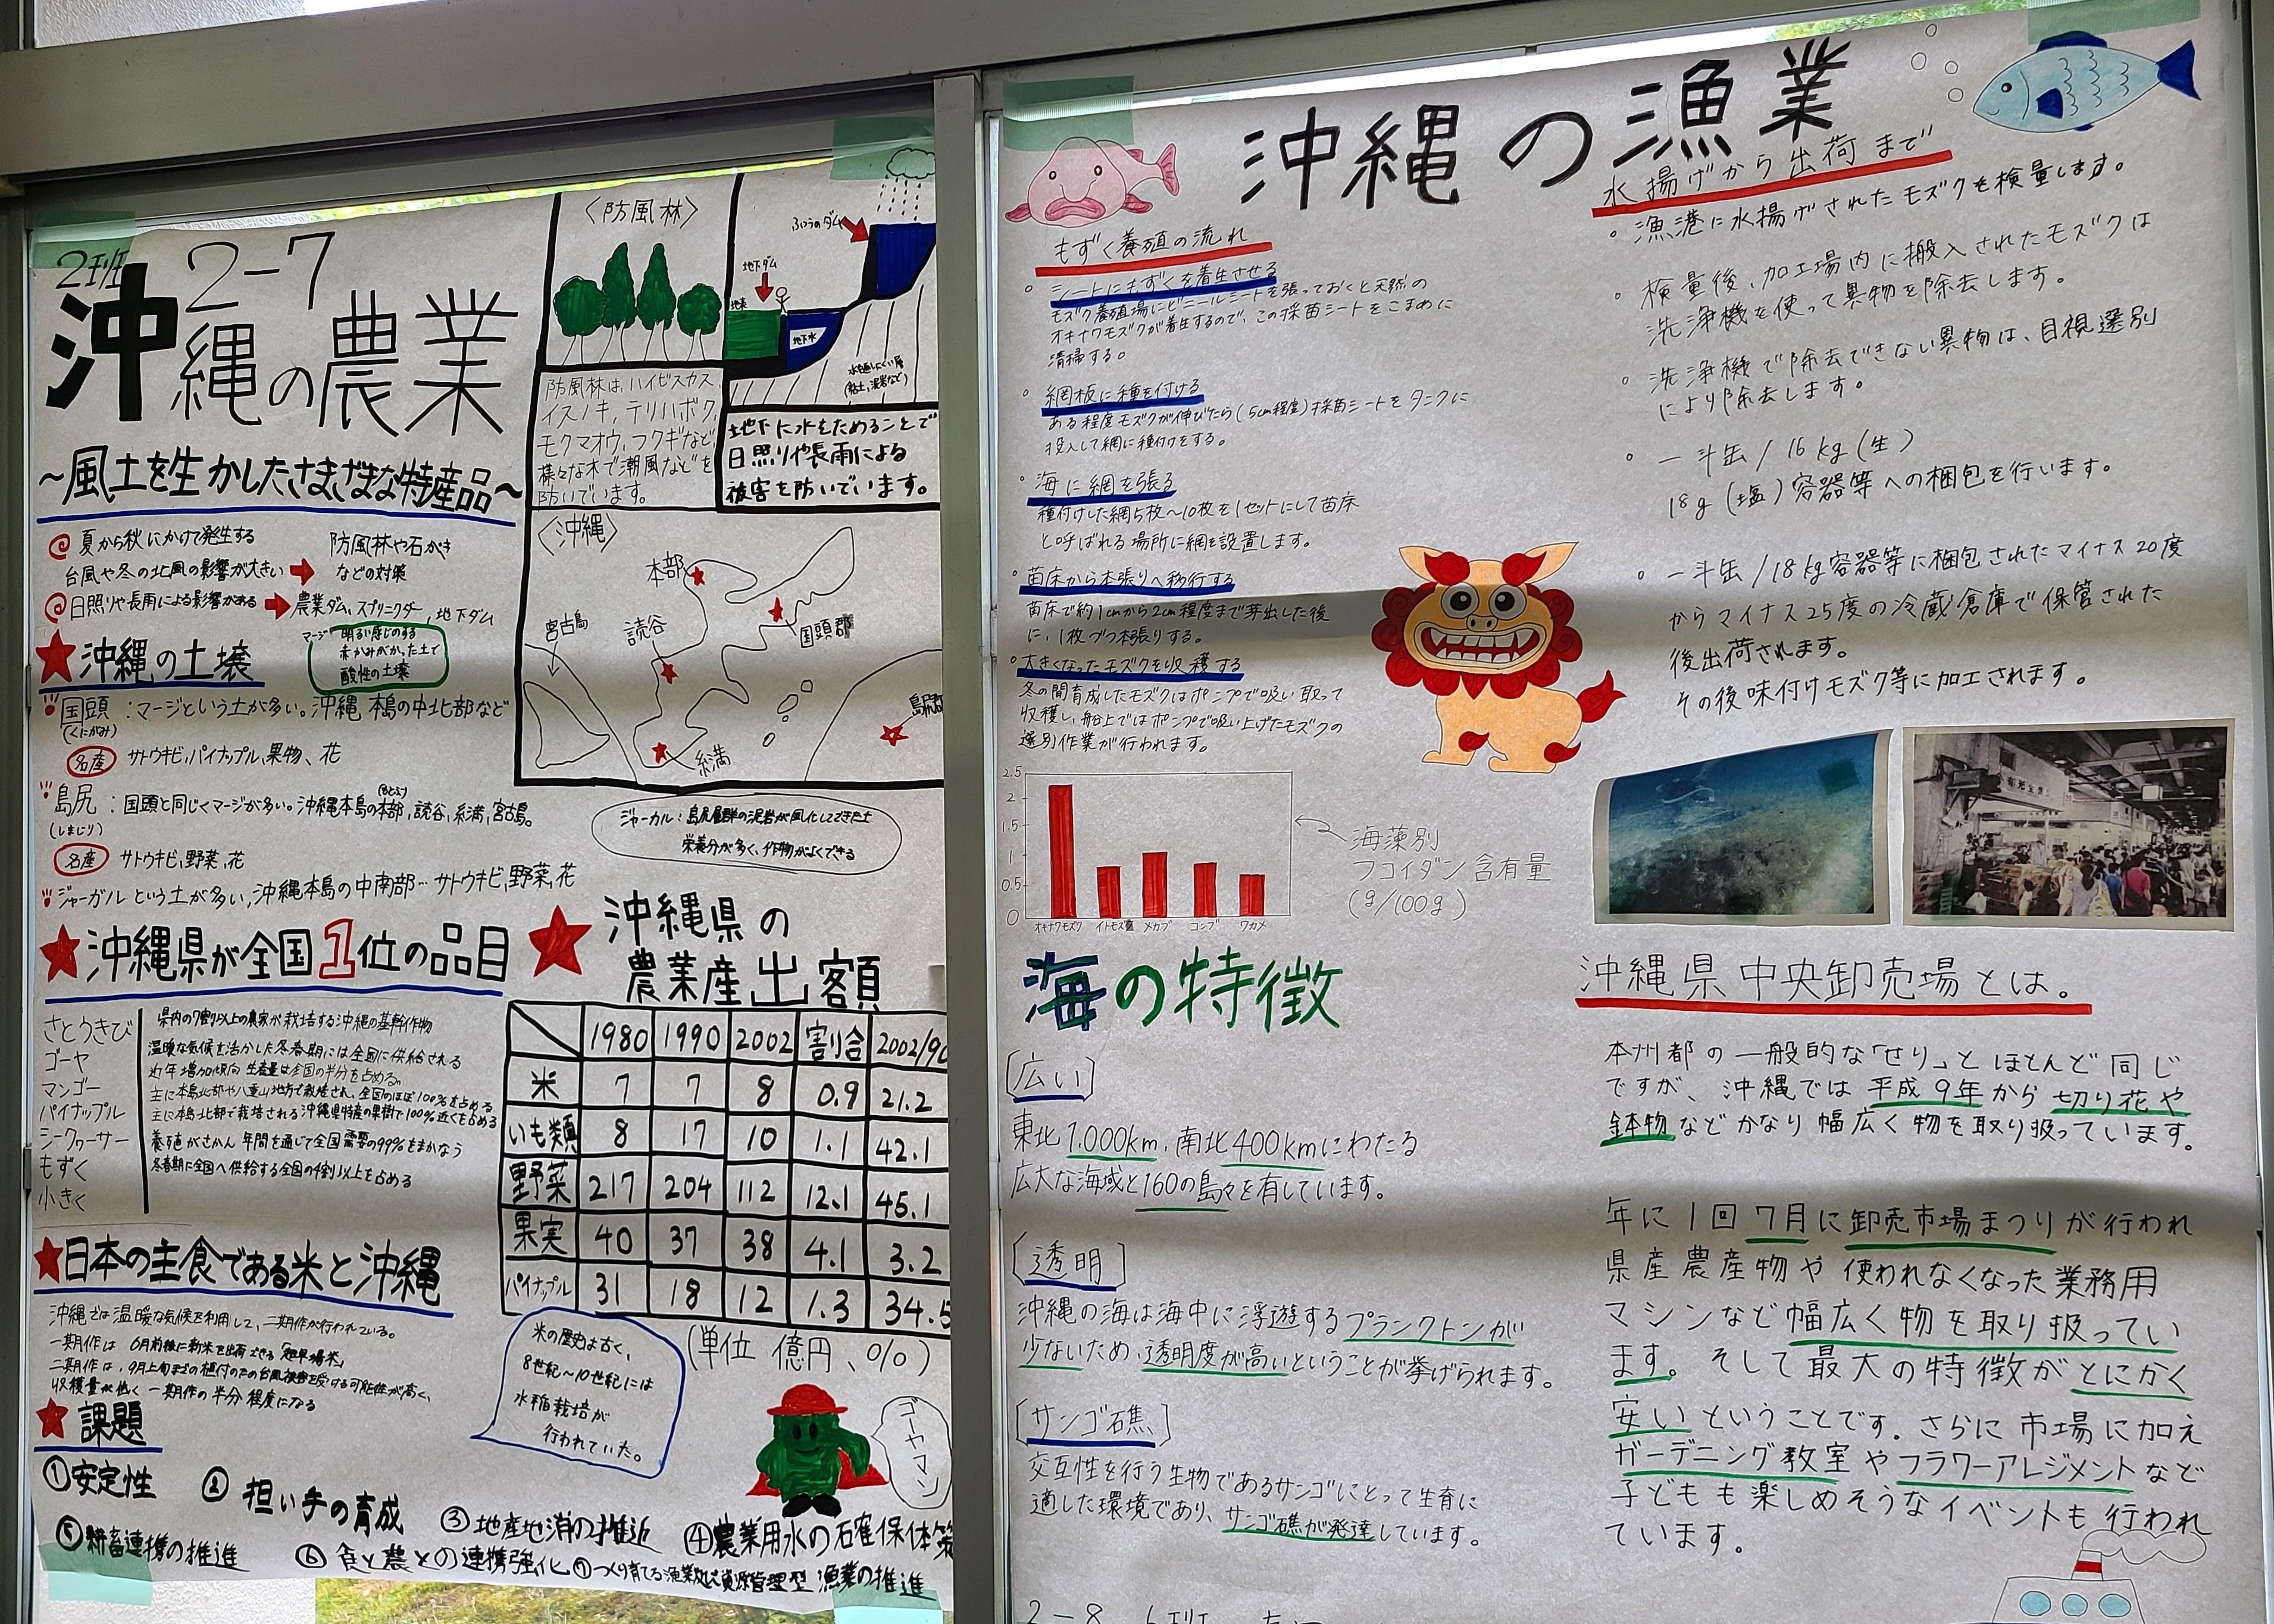 2班 2-7
沖縄の農業
~風土を生かしたさまざまな特産品~
夏から秋にかけて発生する
台風や冬の北風の影響が大きい
防風林や石がき
などの対策
日照りや長雨による影響がある
農業ダム、スプリンクラー、地下ダム
沖縄の土壌
マージ 明るい感じのする
赤かみがかった土で
酸性の土壌
国頭:マージという土が多い。沖縄本島の中北部など
(くにがみ)
名産 サトウキビ,パイナップル,果物、花
島尻:国頭と同じくマージが多い。沖縄本島の本部,読谷,糸満,宮古島。
(しまじり)
名産 サトウキビ,野菜,花
ジャーガルという土が多い,沖縄本島の中南部…サトウキビ,野菜,花
沖縄県が全国1位の品目
さとうきび
ゴーヤ
マンゴー
パイナップル
シークヮーサー
もずく
小きく
県内の7割以上の農家が栽培する沖縄の基幹作物
温暖な気候を活かした冬春期には全国に供給される
近年増加傾向 生産量は全国の半分を占める。
主に本島北部や八重山地方で栽培され、全国のほぼ100%を占める
主に本島北部で栽培される沖縄県特産の果樹で100%近くを占める
養殖がさかん 年間を通じて全国需要の99%をまかなう
冬春期に全国へ供給する全国の4割以上を占める
日本の主食である米と沖縄
沖縄では温暖な気候を利用して、二期作が行われている。
一期作は 6月前後に新米を出荷させる「超早場米」
二期作は、9月上旬までの植付のため台風被害を受ける可能性が高く、
収穫量が低く 一期作の半分程度になる
課題
①安定性
② 担い手の育成
③地産地消の推進
④農業用水の確保体策
⑤耕畜連携の推進
⑥ 食と農との連携強化
⑦つくり育てる漁業及び資源管理型 漁業の推進
〈防風林〉
防風林は、ハイビスカス,
イスノキ,テリハボク,
モクマオウ,フクギなど,
様々な木で潮風などを
防いでいます。
ふつうのダム
地下ダム
地表
地下水
水を通しにくい層
(粘土,泥岩など)
地下に水をためることで
日照りや長雨による
被害を防いでいます。
〈沖縄〉
本部
国頭郡
宮古島
読谷
糸満
ジャーカル:島尻層群の泥岩が風化してできた土
栄養分が多く、作物がよくできる
沖縄県の
農業産出額
1980 1990 2002 割合 2002/90
米 7 7 8 0.9 21.2
いも類 8 17 10 1.1 42.1
野菜 217 204 112 12.1 45.1
果実 40 37 38 4.1 3.2
パイナップル 31 18 12 1.3 34.5
(単位 億円、%)
米の歴史は古く、
8世紀~10世紀には
水稲栽培が
行われていた。
ゴーヤマン
沖縄の漁業
もずく養殖の流れ
シートにもずくを着生させる
モズク養殖場にビニールシートを張っておくと天然の
オキナワモズクが着生するので、この採苗シートをこまめに
清掃する。
網板に種を付ける
ある程度モズクが伸びたら(5cm程度)採苗シートをタンクに
投入して網に種付けをする。
海に網を張る
種付けした網5枚~10枚を1セットにして苗床
と呼ばれる場所に網を設置します。
苗床から本張りへ移行する
苗床で約1cmから2cm程度まで芽出しした後
に、1枚づつ本張りする。
大きくなったモズクを収穫する
冬の間育成したモズクはポンプで吸い取って
収穫し、船上ではポンプで吸い上げたモズクの
選別作業が行われます。
2.5
2
1.5
1
0.5
0
オキナワモズク イトモズク メカブ コンブ ワカメ
海藻別
フコイダン含有量
(g/100g)
海の特徴
[広い]
東北1.000km、南北400kmにわたる
広大な海域と160の島々を有しています。
[透明]
沖縄の海は海中に浮遊するプランクトンが
少ないため、透明度が高いということが挙げられます。
[サンゴ礁]
交互性を行う生物であるサンゴにとって生育に
適した環境であり、サンゴ礁が発達しています。
2-8 6班
水揚げから出荷まで
・漁港に水揚げされたモズクを検量します。
・検量後、加工場内に搬入されたモズクは
洗浄機を使って異物を除去します。
・洗浄機で除去できない異物は、目視選別
により除去します。
・一斗缶/16kg(生)
18g(塩)容器等への梱包を行います。
・一斗缶/18kg容器等に梱包されたマイナス20度
からマイナス25度の冷蔵倉庫で保管された
後出荷されます。
その後味付けモズク等に加工されます。
沖縄県中央卸売場とは。
本州都の一般的な「せり」とほとんど同じ
ですが、沖縄では平成9年から切り花や
鉢物などかなり幅広く物を取り扱っています。
年に1回7月に卸売市場まつりが行われ
県産農産物や使われなくなった業務用
マシンなど幅広く物を取り扱ってい
ます。そして最大の特徴がとにかく
安いということです。さらに市場に加え
ガーデニング教室やフラワーアレジメントなど
子どもも楽しめそうなイベントも行われ
ています。